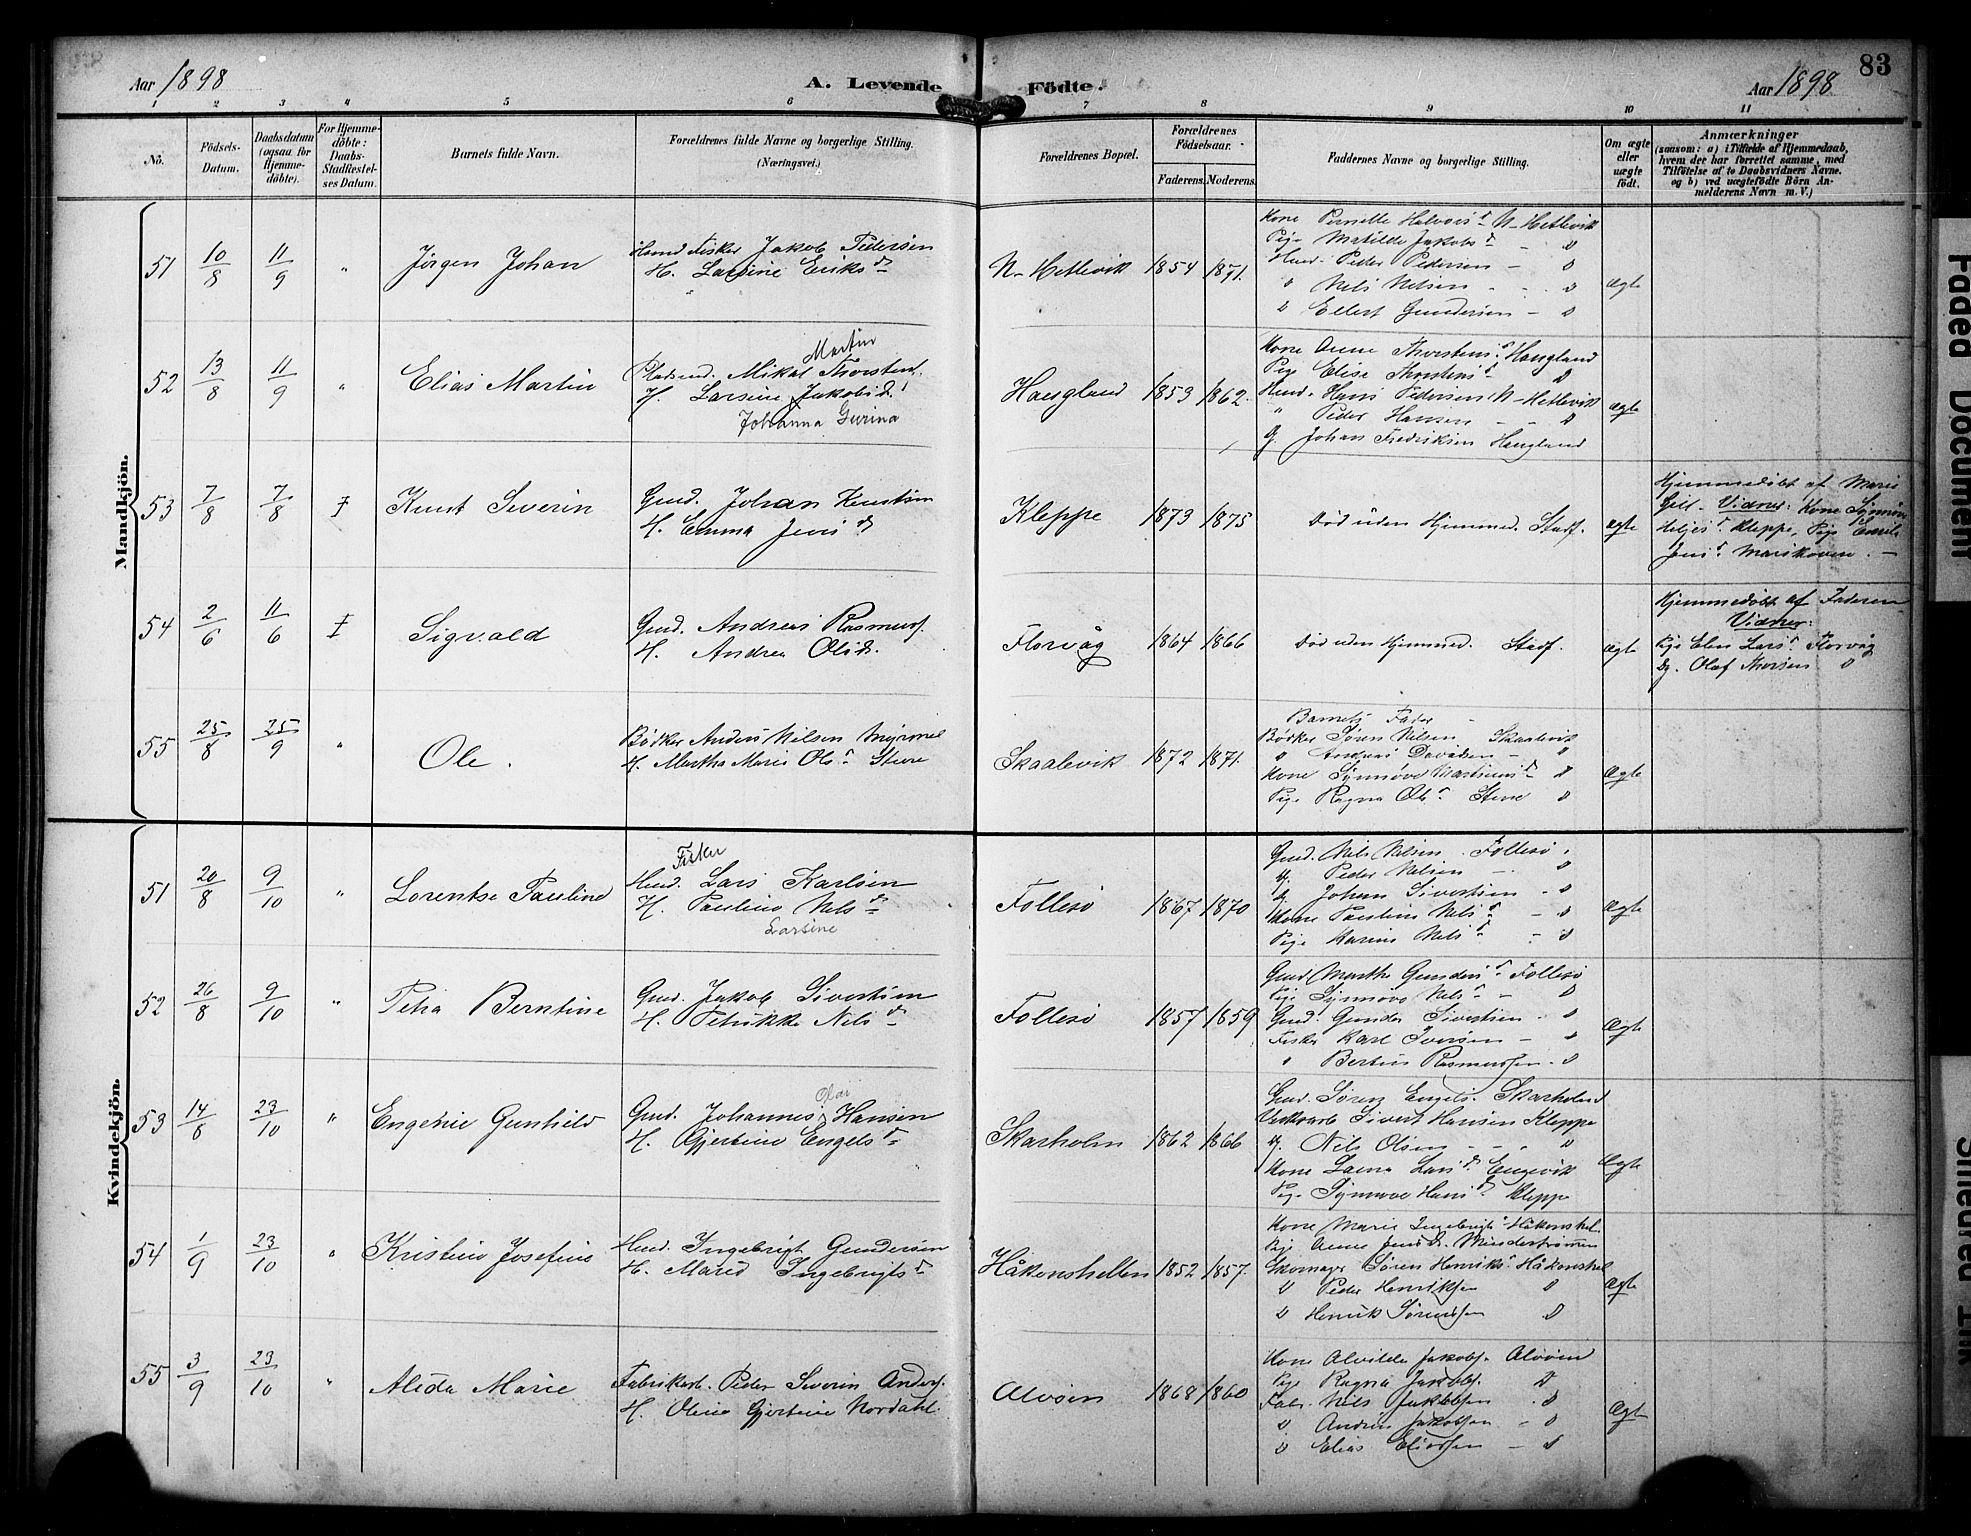 83
Aar 1898
A. Levende Födte.
Aar 1898
1 2 3 4 5 6 7 8 9 10 11
No.
Födsels-Datum.
Daabsdatum (ogsaa for Hjemme-döbte).
For Hjemme-döbte: Daabs-Stadfæstel-ses Datum.
Barnets fulde Navn.
Forældrenes fulde Navne og borgerlige Stilling. (Næringsvei.)
Forældrenes Bopæl.
Forældrenes Födselsaar.
Faderens. Moderens.
Faddernes Navne og borgerlige Stilling.
Om ægte eller uægte födt.
Anmærkninger (saasom: a) i Tilfælde af Hjemmedaab, hvem der har forrettet samme, med Tilföielse af to Daabsvidners Navne. og b) ved uægtefödte Börn An-melderens Navn m. V.)
Mandkjön.
51 10/8 11/9 " Jörgen Johan
Huusmd Fisker Jakob Pedersen
H. Larsine Eriksd.
N-Hetlevik 1854 1871.
Kone Pernelle Halvorsd. N-Hetlevik
Pige Matilde Jakobsd. - "
Huusmd. Peder Pedersen - "
" Nels Nelsen - "
" Ellert Gundersen - "
Ægte
52 13/8 11/9 " Elias Martin
Martin
Pladsmd. Mikal Thorstens.
H. Larsine Jakobsd.
Johanna Gurina
Haugland 1853 1862.
Kone Anne Thorstensd. Haugland
Pige Elise Thorstensd. "
Huusmd. Hans Pedersen N-Hetlevik
" Peder Hansen - "
G. Johan Fredriksen Haugland
Ægte
53 7/8 7/8 Knut Severin
Gmd. Johan Knutsen
H. Emma Jensd.
Kleppe 1873 1875
Död uden Hjemmed. Stadf.
Ægte
Hjemmedöbt af Marie
Vidner: Kone Synnöve
Heljesd. Kleppe, Pige Emili
54 2/6 11/6 Sigvald
Gmd. Andreas Rasmuss.
H. Andrea Olsd.
Florvåg 1864 1866
Död uden Hjemmed. Stadf.
Ægte
Hjemmedöbt af Faderen
Vidner:
Pige Elen Larsd. Florvåg
Olaf Thorsen "
55 25/8 25/9 " Ole.
Bödker Anders Nilsen Myrmel
H. Martha Marie Olsd. Sture
Skaalevik 1872 1871.
Barnets Fader
Bödker Sören Nilsen Skaalevik
" Anders Davidsen - "
Kone Synnöve Martinusd. "
Pige Ragna Olsd. Sture "
Ægte
Kvindekjön.
51 20/8 9/10 " Lorentse Pauline
Fisker
Huusmd. Lars Karlsen
H. Pauline Nelsd.
Larsine
Follesö 1867 1870
Gmd. Nils Nilsen Follesö
Peder Nilsen - "
Johan Sivertsen - "
Kone Pauline Nilsd. - "
Pige Karine Nilsd. - "
Ægte
52 26/8 9/10 " Petra Berntine
Gmd. Jakob Sivertsen
H. Petrikke Nilsd.
Follesö 1857 1859
Gmd Marthe Gundersd. Follesö
Pige Synnöve Nilsd. - "
Gmd. Gunder Sivertsen - "
Fisker Karl Iversen - "
" Bertin Rasmussen - "
Ægte
53 14/8 23/10 " Engelie Gunhild
Olai
Gmd. Johannes Hansen
H. Gjertine Engelsd.
Skarholm 1862 1866
Gmd. Sören Engels. Skarholm
Sivert Hansen Kleppe
Nils Olsen - "
Kone Larsd. Engevik
Pige Synnöve Hansd. Kleppe
Ægte
54 1/9 23/10 " Kristine Josefine
Huusmd. Ingebrigt Gundersen
H. Maria Ingebrigtsd.
Håkonshellen 1852 1857.
Kone Marie Ingebrigtsd. Håkonshel.
Pige Anne Jensd. Mindeströmmen
Skomager Sören Henriks. Håkonshel
" Peder Henriksen "
" Henrik Sörensen "
Ægte
55 3/9 23/10 " Alida Marie
Fabrikarb. Peder Severin Anders.
H. Oline Gjertine Nordahl.
Alvöen 1868 1860
Kone Alvilde Jakobs. Alvöen
Pige Ragna Jakobs. "
Fabr. Nils Jakobsen "
" Andreas Jakobsen - "
" Elias Eliassen - "
Ægte
Faded Document
Smeared Ink